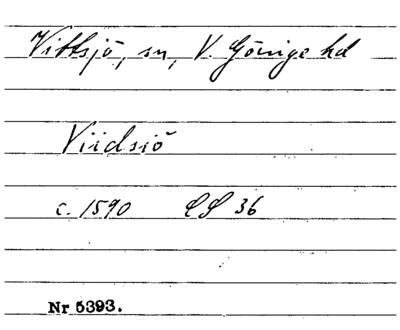 Vittsjö, sn, V. Göinge hd
Viidsiö
c. 1590 LS 36
Nr 5393.